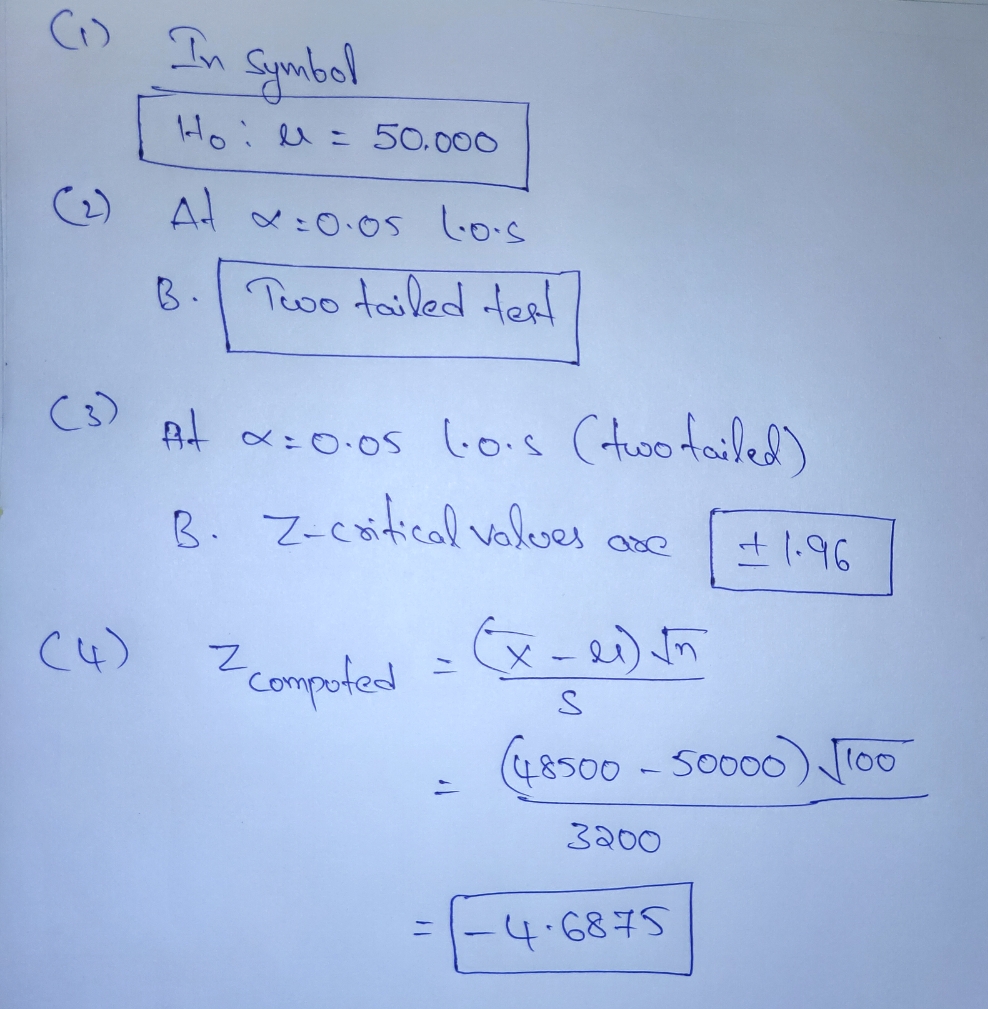 (1) In symbol
H₀ : μ = 50.000
(2) At α = 0.05 l.o.s
B. Two tailed test
(3) At α = 0.05 l.o.s (two tailed)
B. Z-critical values are ± 1.96
(4) Z computed = (x̄ - μ) √n / S
= (48500 - 50000) √100 / 3200
= -4.6875